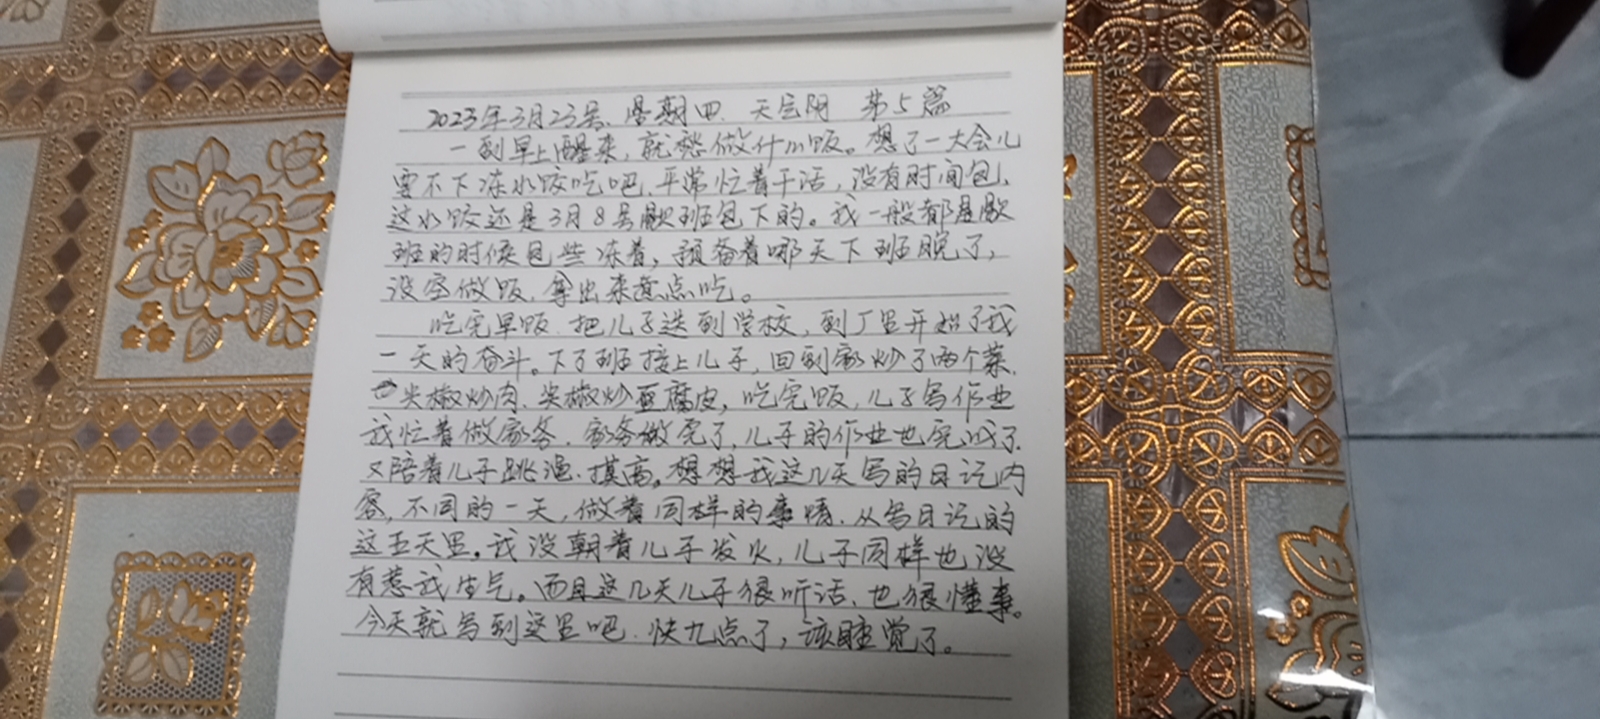 2023年3月23号、星期四、天气阴 第5篇
一到早上醒来，就愁做什么饭。想了一大会儿
要不下冻水饺吃吧、平常忙着干活，没有时间包、
这水饺还是3月8号歇班包下的。我一般都是歇
班的时候包些冻着，预备着哪天下班晚了，
没空做饭，拿出来煮点吃。
吃完早饭、把儿子送到学校，到厂里开始了我
一天的奋斗。下了班接上儿子，回到家炒了两个菜、
尖椒炒肉、尖椒炒豆腐皮，吃完饭，儿子写作业
我忙着做家务、家务做完了，儿子的作业也完成了、
又陪着儿子跳绳、摸高。想想我这几天写的日记内
容，不同的一天，做着同样的事情、从写日记的
这五天里。我没朝着儿子发火，儿子同样也没
有惹我生气。而且这几天儿子很听话、也很懂事。
今天就写到这里吧、快九点了，该睡觉了。